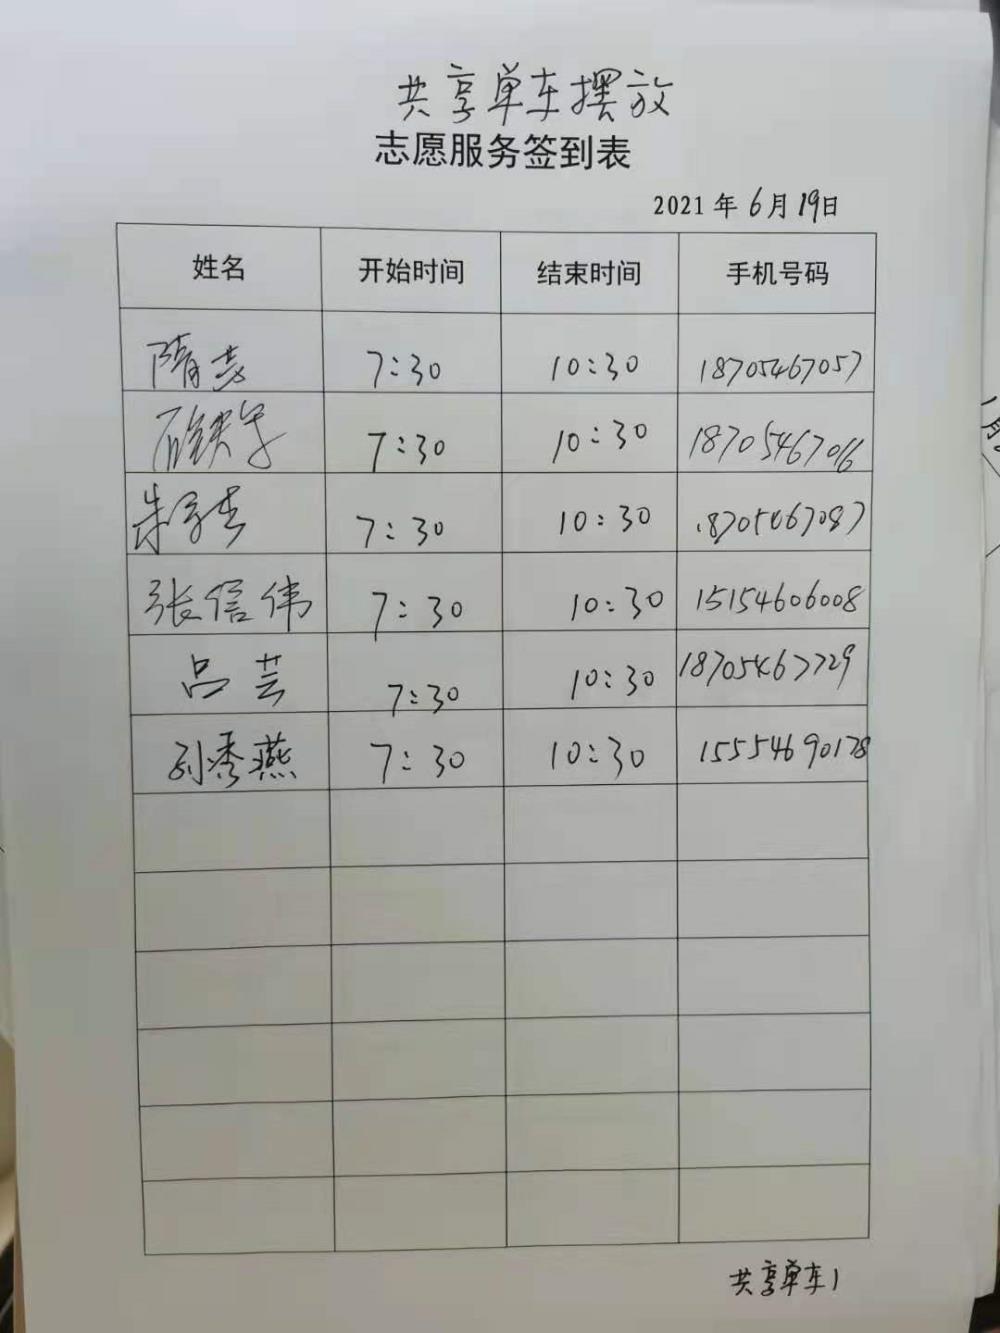 共享单车摆放
志愿服务签到表
2021年6月19日
姓名 开始时间 结束时间 手机号码
隋芸 7:30 10:30 18705467057
7:30 10:30 18705467016
朱 7:30 10:30 18705467087
张信伟 7:30 10:30 15154606008
吕芸 7:30 10:30 18705467729
孙秀燕 7:30 10:30 15554690178
共享单车1